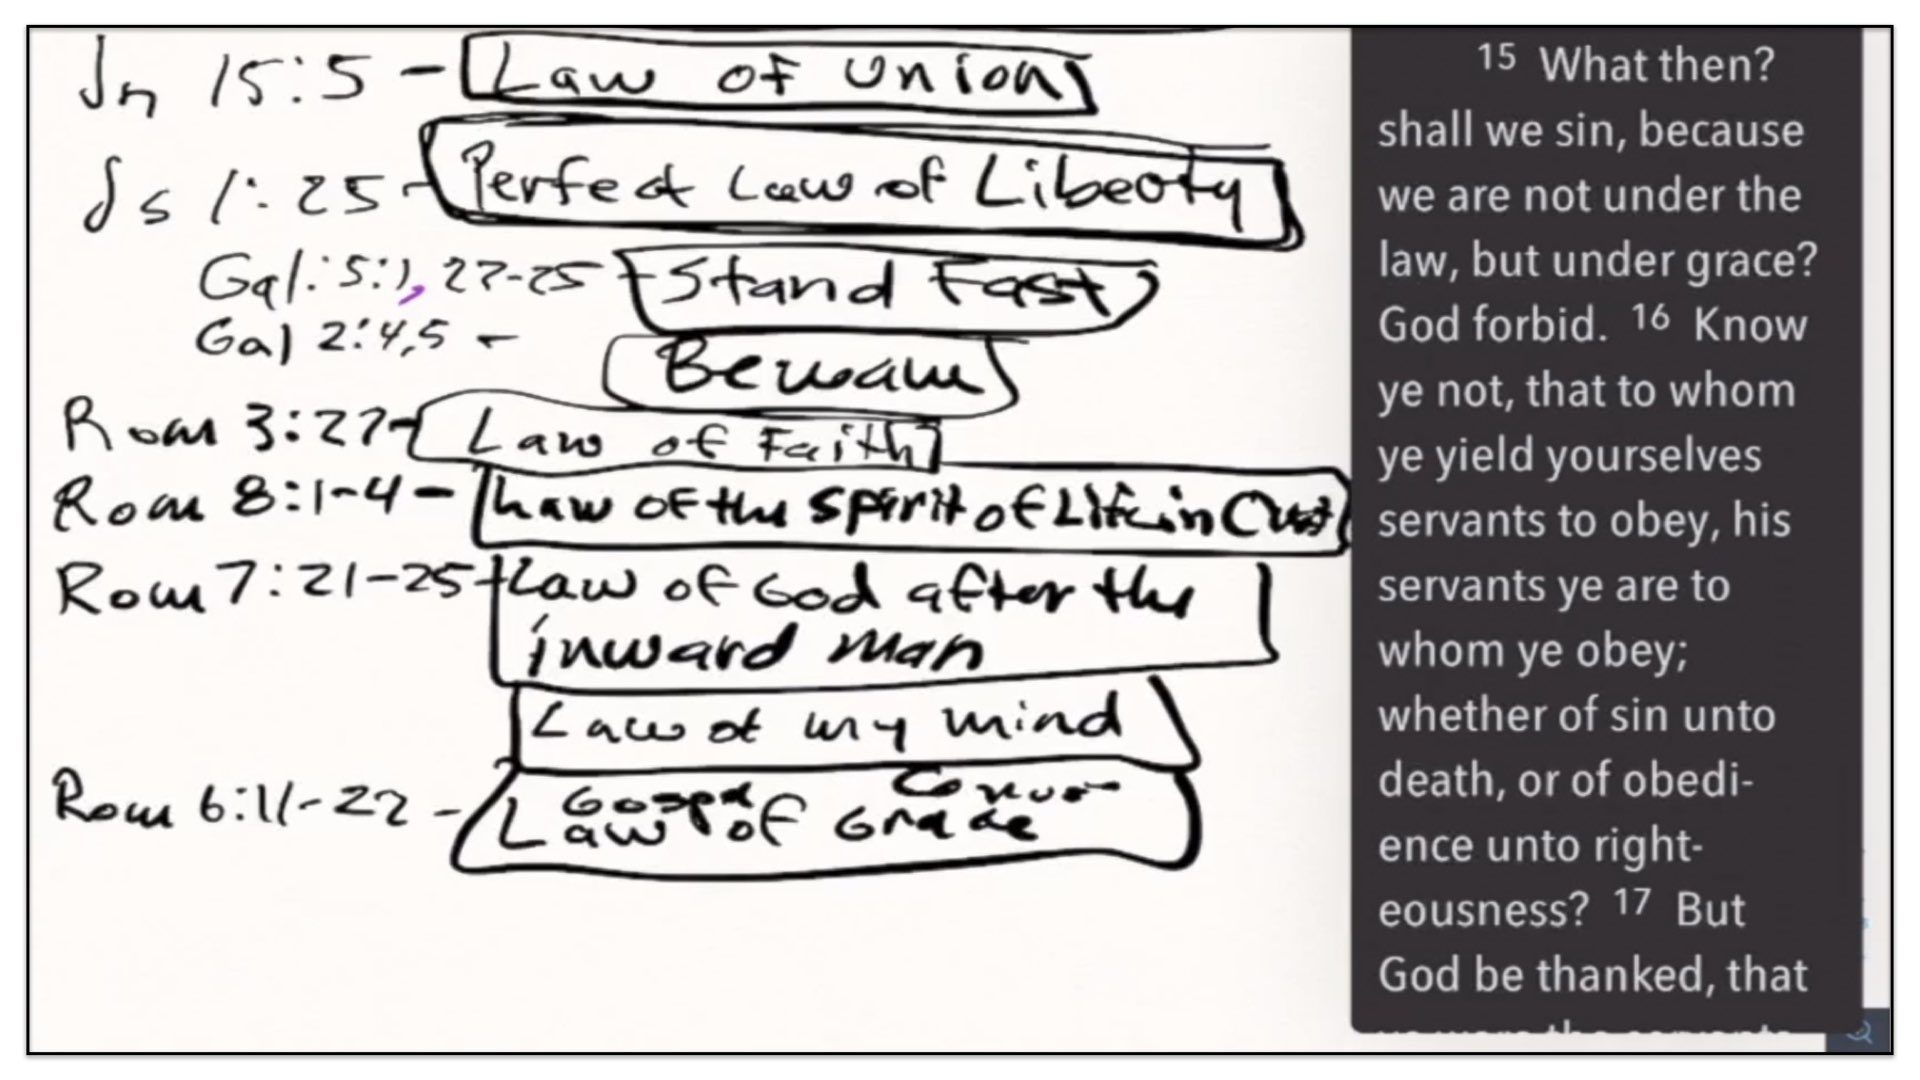 Jn 15:5 - Law of Union
Js 1:25 - Perfect Law of Liberty
Gal: 5:1, 22-25 - Stand Fast
Gal 2:4,5 -
Beware
Rom 3:27 - Law of Faith
Rom 8:1-4 - Law of the Spirit of Life in Christ
Rom 7:21-25 - Law of God after the
inward man
Law of my mind
Gospel
Rom 6:11-22 - Law of Grace
15 What then?
shall we sin, because
we are not under the
law, but under grace?
God forbid. 16 Know
ye not, that to whom
ye yield yourselves
servants to obey, his
servants ye are to
whom ye obey;
whether of sin unto
death, or of obedi-
ence unto right-
eousness? 17 But
God be thanked, that